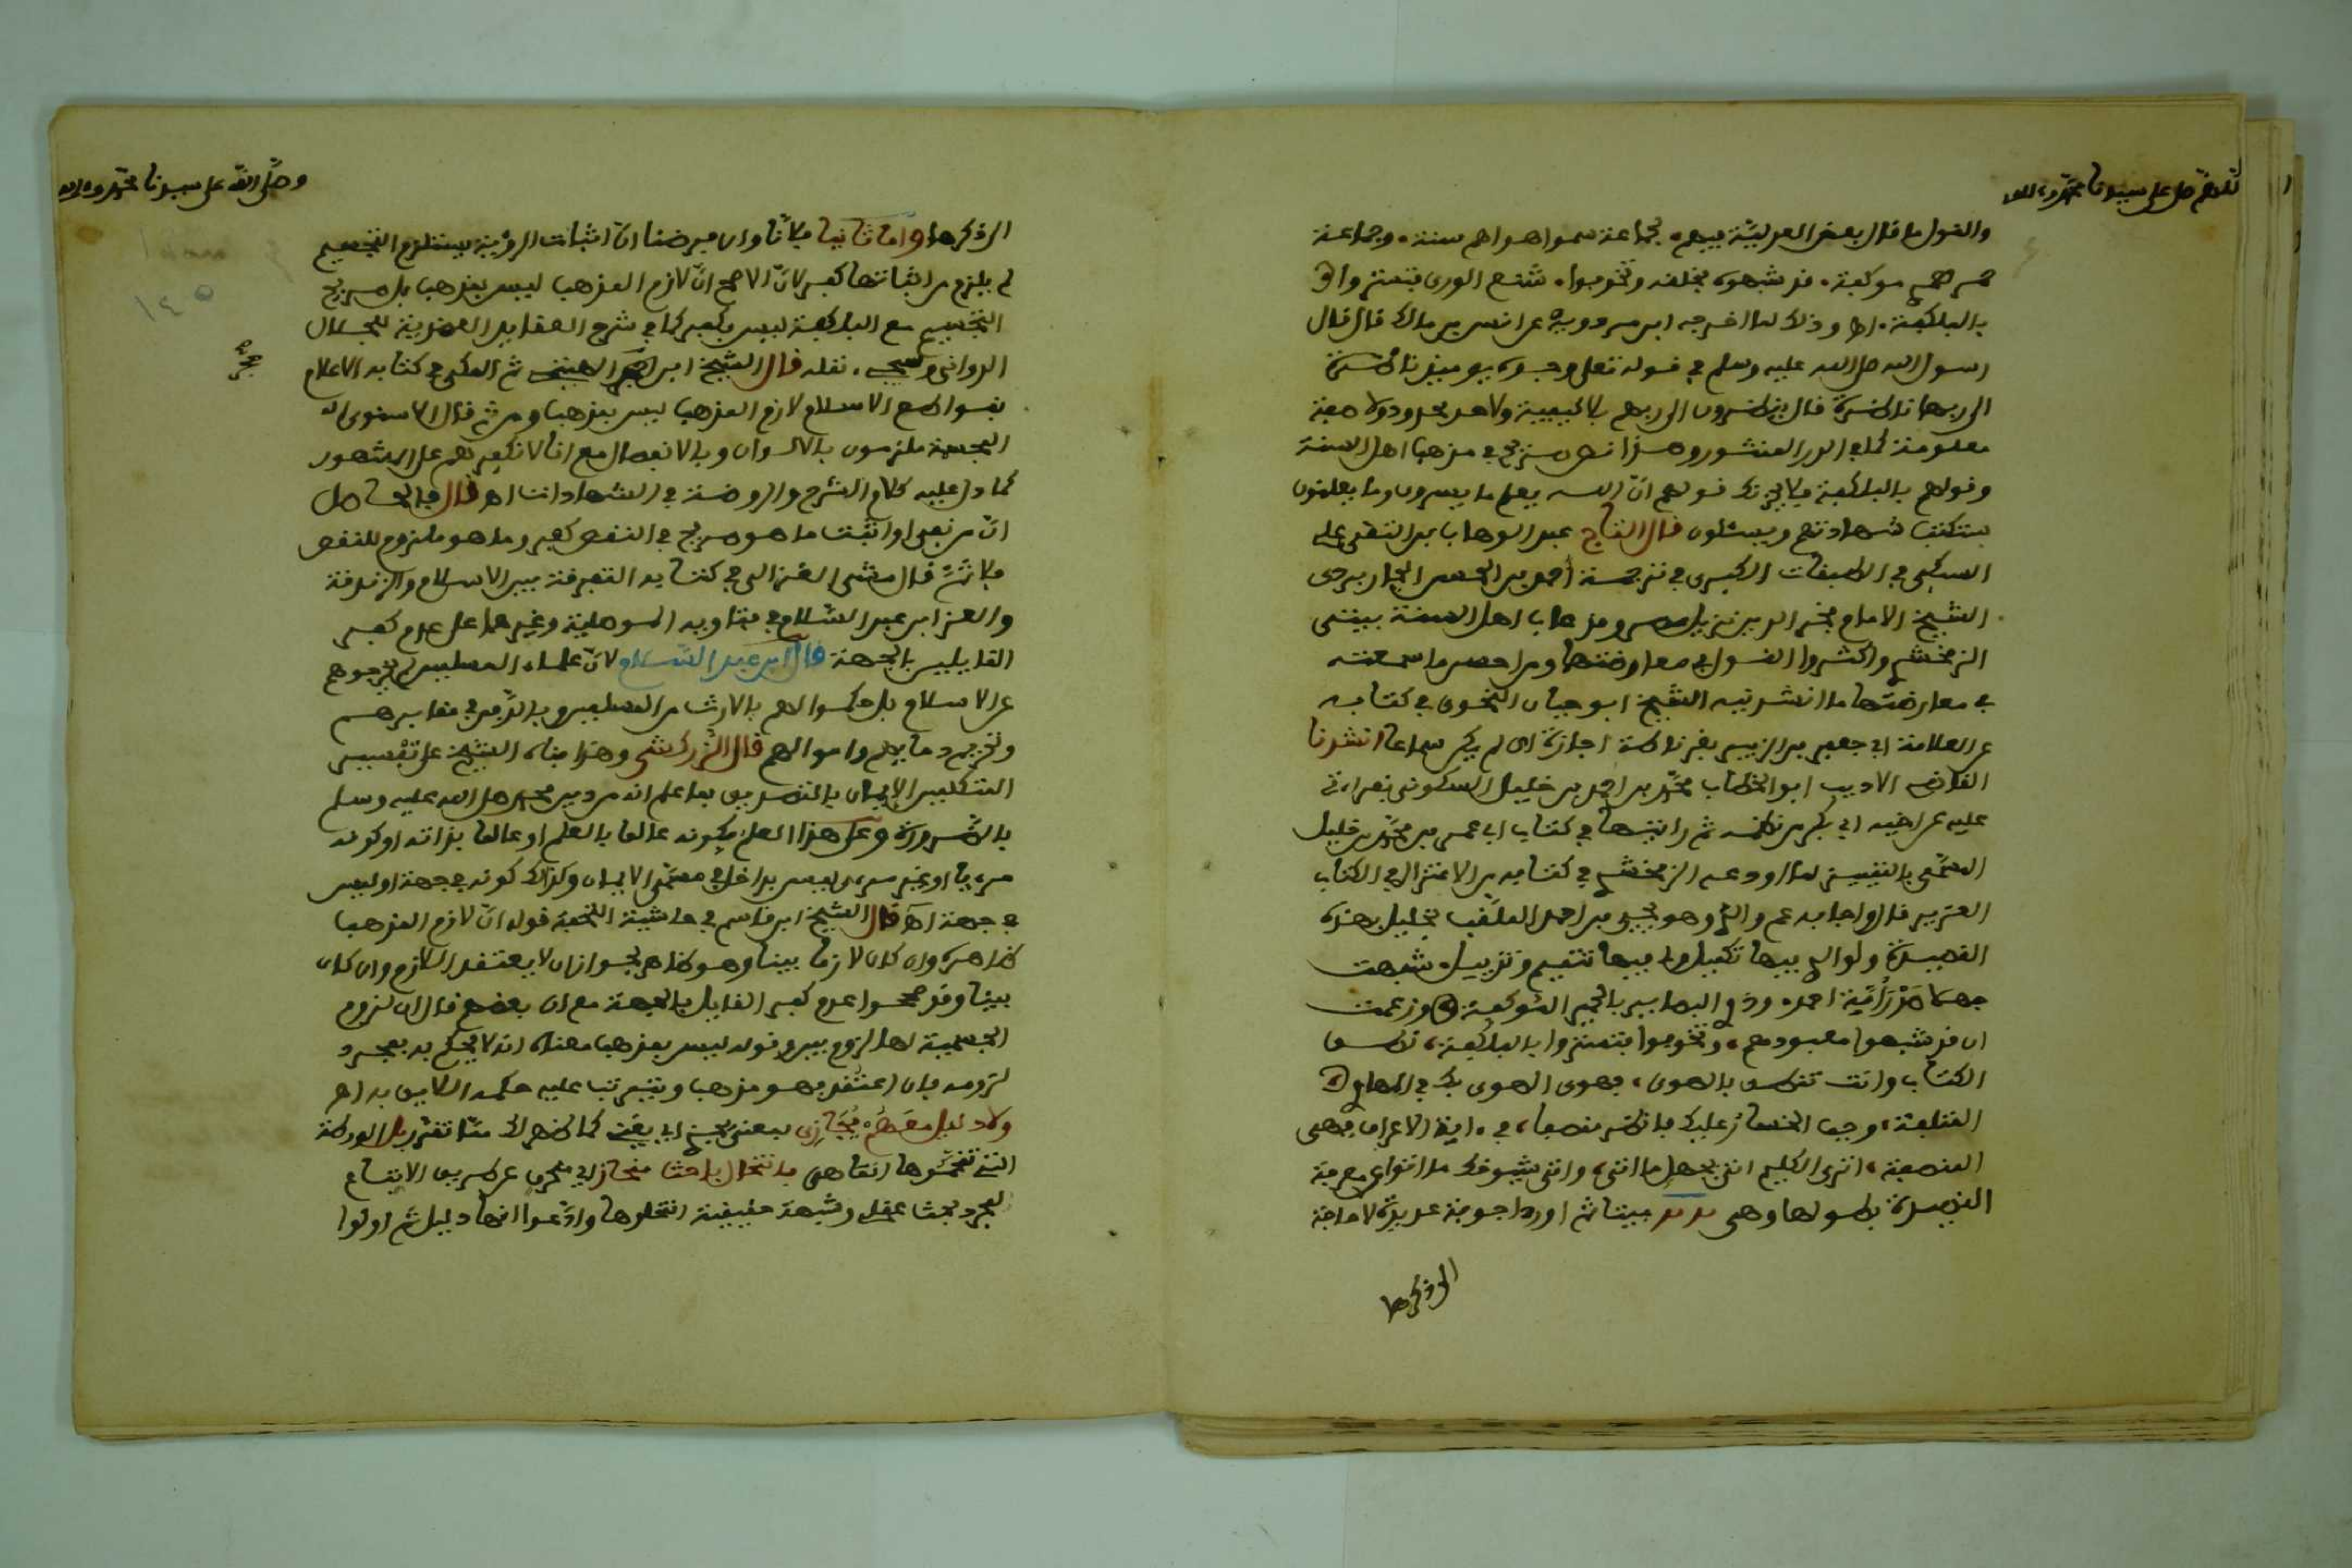 اللهم صل على سيدنا محمد وءاله
والقول ما قال بعض العدلية فيهم لجماعة سموا هواهم سنة وجماعة
حمر لعمري موكفة قد شبهوه بخلقه وتخوفوا شنع الورى فتستروا
بالبلكفة اه وذلك لما اخرجه ابن مردويه عن انس بن مالك قال قال
رسول الله صلى الله عليه وسلم في قوله تعلى وجوه يومئذ ناضرة
الى ربها ناظرة قال ينظرون الى ربهم بلا كيفية ولا حد محدود ولا صفة
معلومة كما في الدر المنثور وهذا نص صريح في مذهب اهل السنة
وقولهم بالبلكفة فلا يجزنك قولهم انّ الله يعلم ما يسرون وما يعلنون
ستكتب شهادتهم ويسئلون قال التاج عبد الوهاب بن التقي علي
السبكي في الطبقات الكبرى في ترجمة أحمد بن الحسن الجاربردي
الشيخ الامام فخر الدين نزيل وقد عاب اهل السنة ببيتي
الزمخشري واكثروا القول في معارضتهما ومن احسن ما سمعته
في معارضتهما ما انشدنيه الشيخ ابو حيان النحوي في كتابه
عن العلامة ابي جعفر بن الزبير بغرناطة اجازة ان لم يكن سماعا انشدنا
القاضي الاديب ابو الخطاب محمّد بن احمد بن خليل السكوني بقراءتي
عليه عن اخيه ابي بكر من نظمه ثم رايتها في كتاب ابي عمر بن محمّد بن خليل
المسمّى بالتمييز لما اودعه الزمخشري في كتابه من الاعتزال في الكتاب
العزيز قال واجابه عم والدي وهو يحيى بن احمد الملقب بخليل بهذه
القصيدة ولوالدي فيها تكميل ولي فيها تتميم وتذييل شبهت
جهلا صَدْرَ أُمّة احمد وذوي البصاير بالحمير الموكفة وزعمت
ان قد شبهوا معبودهم وتخوفوا فتستروا بالبلكفة نطق
الكتاب وانت تنطق بالهوى فهوى الهوى بك في المهاوي
المتلفة وجب الخسار عليك فانظر منصفا في ءاية الاعراف فهي
المنصفة اترى الكليم اتى بجهل ما اتى واتى شيوخك ما اتوا عن معرفة
القصيدة بطولها وهي بيتا ثم اورد اجوبة عديدة لا حاجة
الى ذكرها
وصلّى الله على سيدنا محمّد وءاله
الى ذكرها وامّا ثانيا فلانّا وان فرضنا انّ اثبات الرؤية يستلزم التجسيم
لم يلزم من اثباتها كفر لانّ الاصح انّ لازم المذهب ليس بمذهب بل صريح
التجسيم مع البلكفة ليس بكفر كما في شرح العقايد العضدية للجلال
الدواني نقله قال الشيخ ابن حجر الهيتمي ثم المكي في كتابه الاعلام
بقواطع الاسلام لازم المذهب ليس بمذهب ومن ثم قال الاسنوي
المجسمة ملزمون بالالوان وبالانفصال مع انا لا نكفرهم على المشهور
كما دل عليه كلام الشرح والروضة في الشهادات اه قال فالحاصل
انّ من نفى او اثبت ما هو صريح في النقص كفر وما هو ملزوم للنقص
فلا ثَمّ قال مشى الغزالي في كتابه التفرقة بين الاسلام والزندقة
والعز ابن عبد السّلام في فتاويه الموصلية وغيرهما على عدم كفر
القايلين بالجهة قال ابن عبد السّلام لانّ علماء المسلمين لم يخرجوهم
عن الاسلام بل حكموا لهم بالارث من المسلمين وبالدّفن في مقابرهم
وتحريم دمايهم واموالهم قال الزركشي وهذا بناه الشيخ على تفسير
المتكلمين الايمان بالتصديق بما علم انه من دين محمد صلى الله عليه وسلم
بالضرورة وعلى هذا العلم بكونه عالما بالعلم او عالما بذاته او كونه
مرءيا او غير مرءي ليس بداخل في مسمّى الايمان وكذلك كونه في جهة او ليس
في جهة اه قال الشيخ ابن قاسم في حاشية التحفة قوله انّ لازم المذهب
ظاهره وان كان لازما بينا وهو ظاهر لجواز ان لا يعتقد اللازم وان كان
بينا وقد صححوا عدم كفر القايل بالجهة مع ان بعضهم قال ان لزوم
الجسمية لها لزوم بين وقوله ليس بمذهب معناه انه لا يحكم به بمجرد
لزومه فان اعتقد فهو مذهب ويترتب عليه حكمه اللايق به اه
ولا دليل معهم يُجَازى بمعنى اي يقنع كما ظهر لك ممّا تقرّر بل الورطة
التي تقحّموها انما هي بانتحال باحث منحاز اي منحرف عن طريق الاتباع
لمجرد بحث عقلي وشبهة انتحلوها وادّعوا انها دليل ثم اولوا